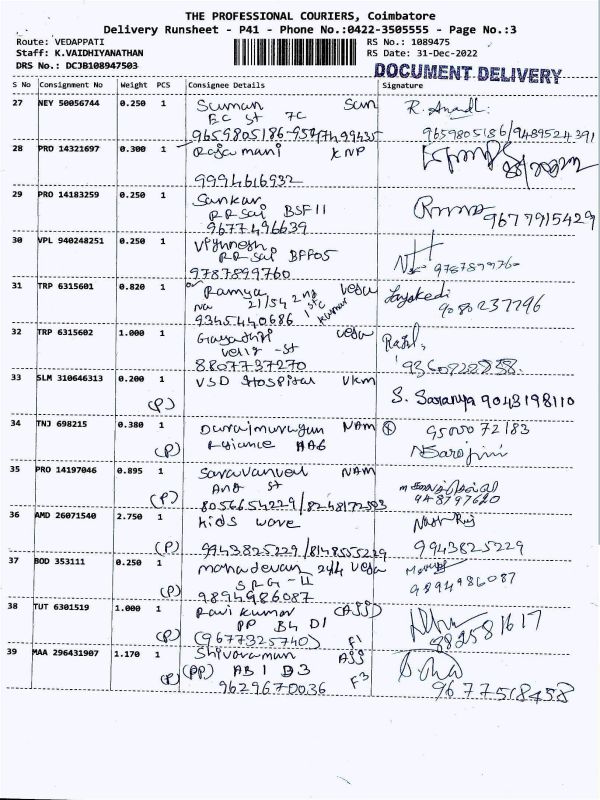 THE PROFESSIONAL COURIERS, Coimbatore
Delivery Runsheet - P41 - Phone No.:0422-3505555 - Page No.:3
Route: VEDAPPATI
RS No.: 1089475
Staff: K.VAIDHIYANATHAN
RS Date: 31-Dec-2022
DRS No.: DCJB108947503
DOCUMENT DELIVERY
S No Consignment No Weight PCS Consignee Details Signature
27 NEY 50056744 0.250 1 Suman Sun
EC St 7C
9659805186
9659805186/9489524391
28 PRO 14321697 0.300 1 Rajamani KNP
9994616932
29 PRO 14183259 0.250 1 Sankar
RR Sai BSF11
9677496639
9677915429
30 VPL 940248251 0.250 1 Vighnesh
RR Sai BFF05
9787899760
9787899760
31 TRP 6315601 0.820 1 Ramya Veda
21/54 2nd
9345440686
9080237796
32 TRP 6315602 1.000 1 Gayathri Veda
Velly -St
8807737270
33 SLM 310646313 0.200 1 VSD Hospital Vkm
(P)
S. Saranya 9043198110
34 TNJ 698215 0.380 1 Duraimurugan NAM
(P) Reliance AAG
Sarojini
35 PRO 14197046 0.895 1 Saravanvel NAM
(P) And St
8056654229/8248172503
36 AMD 26071540 2.750 1 Kids wave
(P) 9943825229/8148555229
9943825229
37 BOD 353111 0.250 1 Mahadevan 24/4 Veda
(P) SRG - II
9894986087
9894986087
38 TUT 6301519 1.000 1 Ravi Kumar (Ass)
PP B4 D1
(P) (9677325740) F1
882581617
39 MAA 296431907 1.170 1 Shivaraman Ass
(P) (PP) AB1 D3
9629670036 F3
9677518458